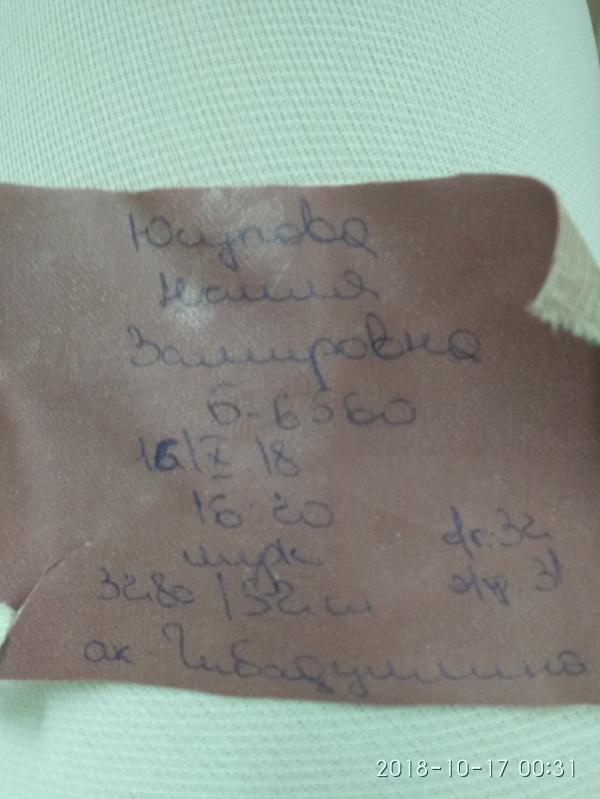 Юсупова
Наиля
Замировна
Б-6560
16/X 18
16 20
муж
о/г. 32
3280 / 52 см
о/гр. 31
ак. Гибадуллина
2018-10-17 00:31